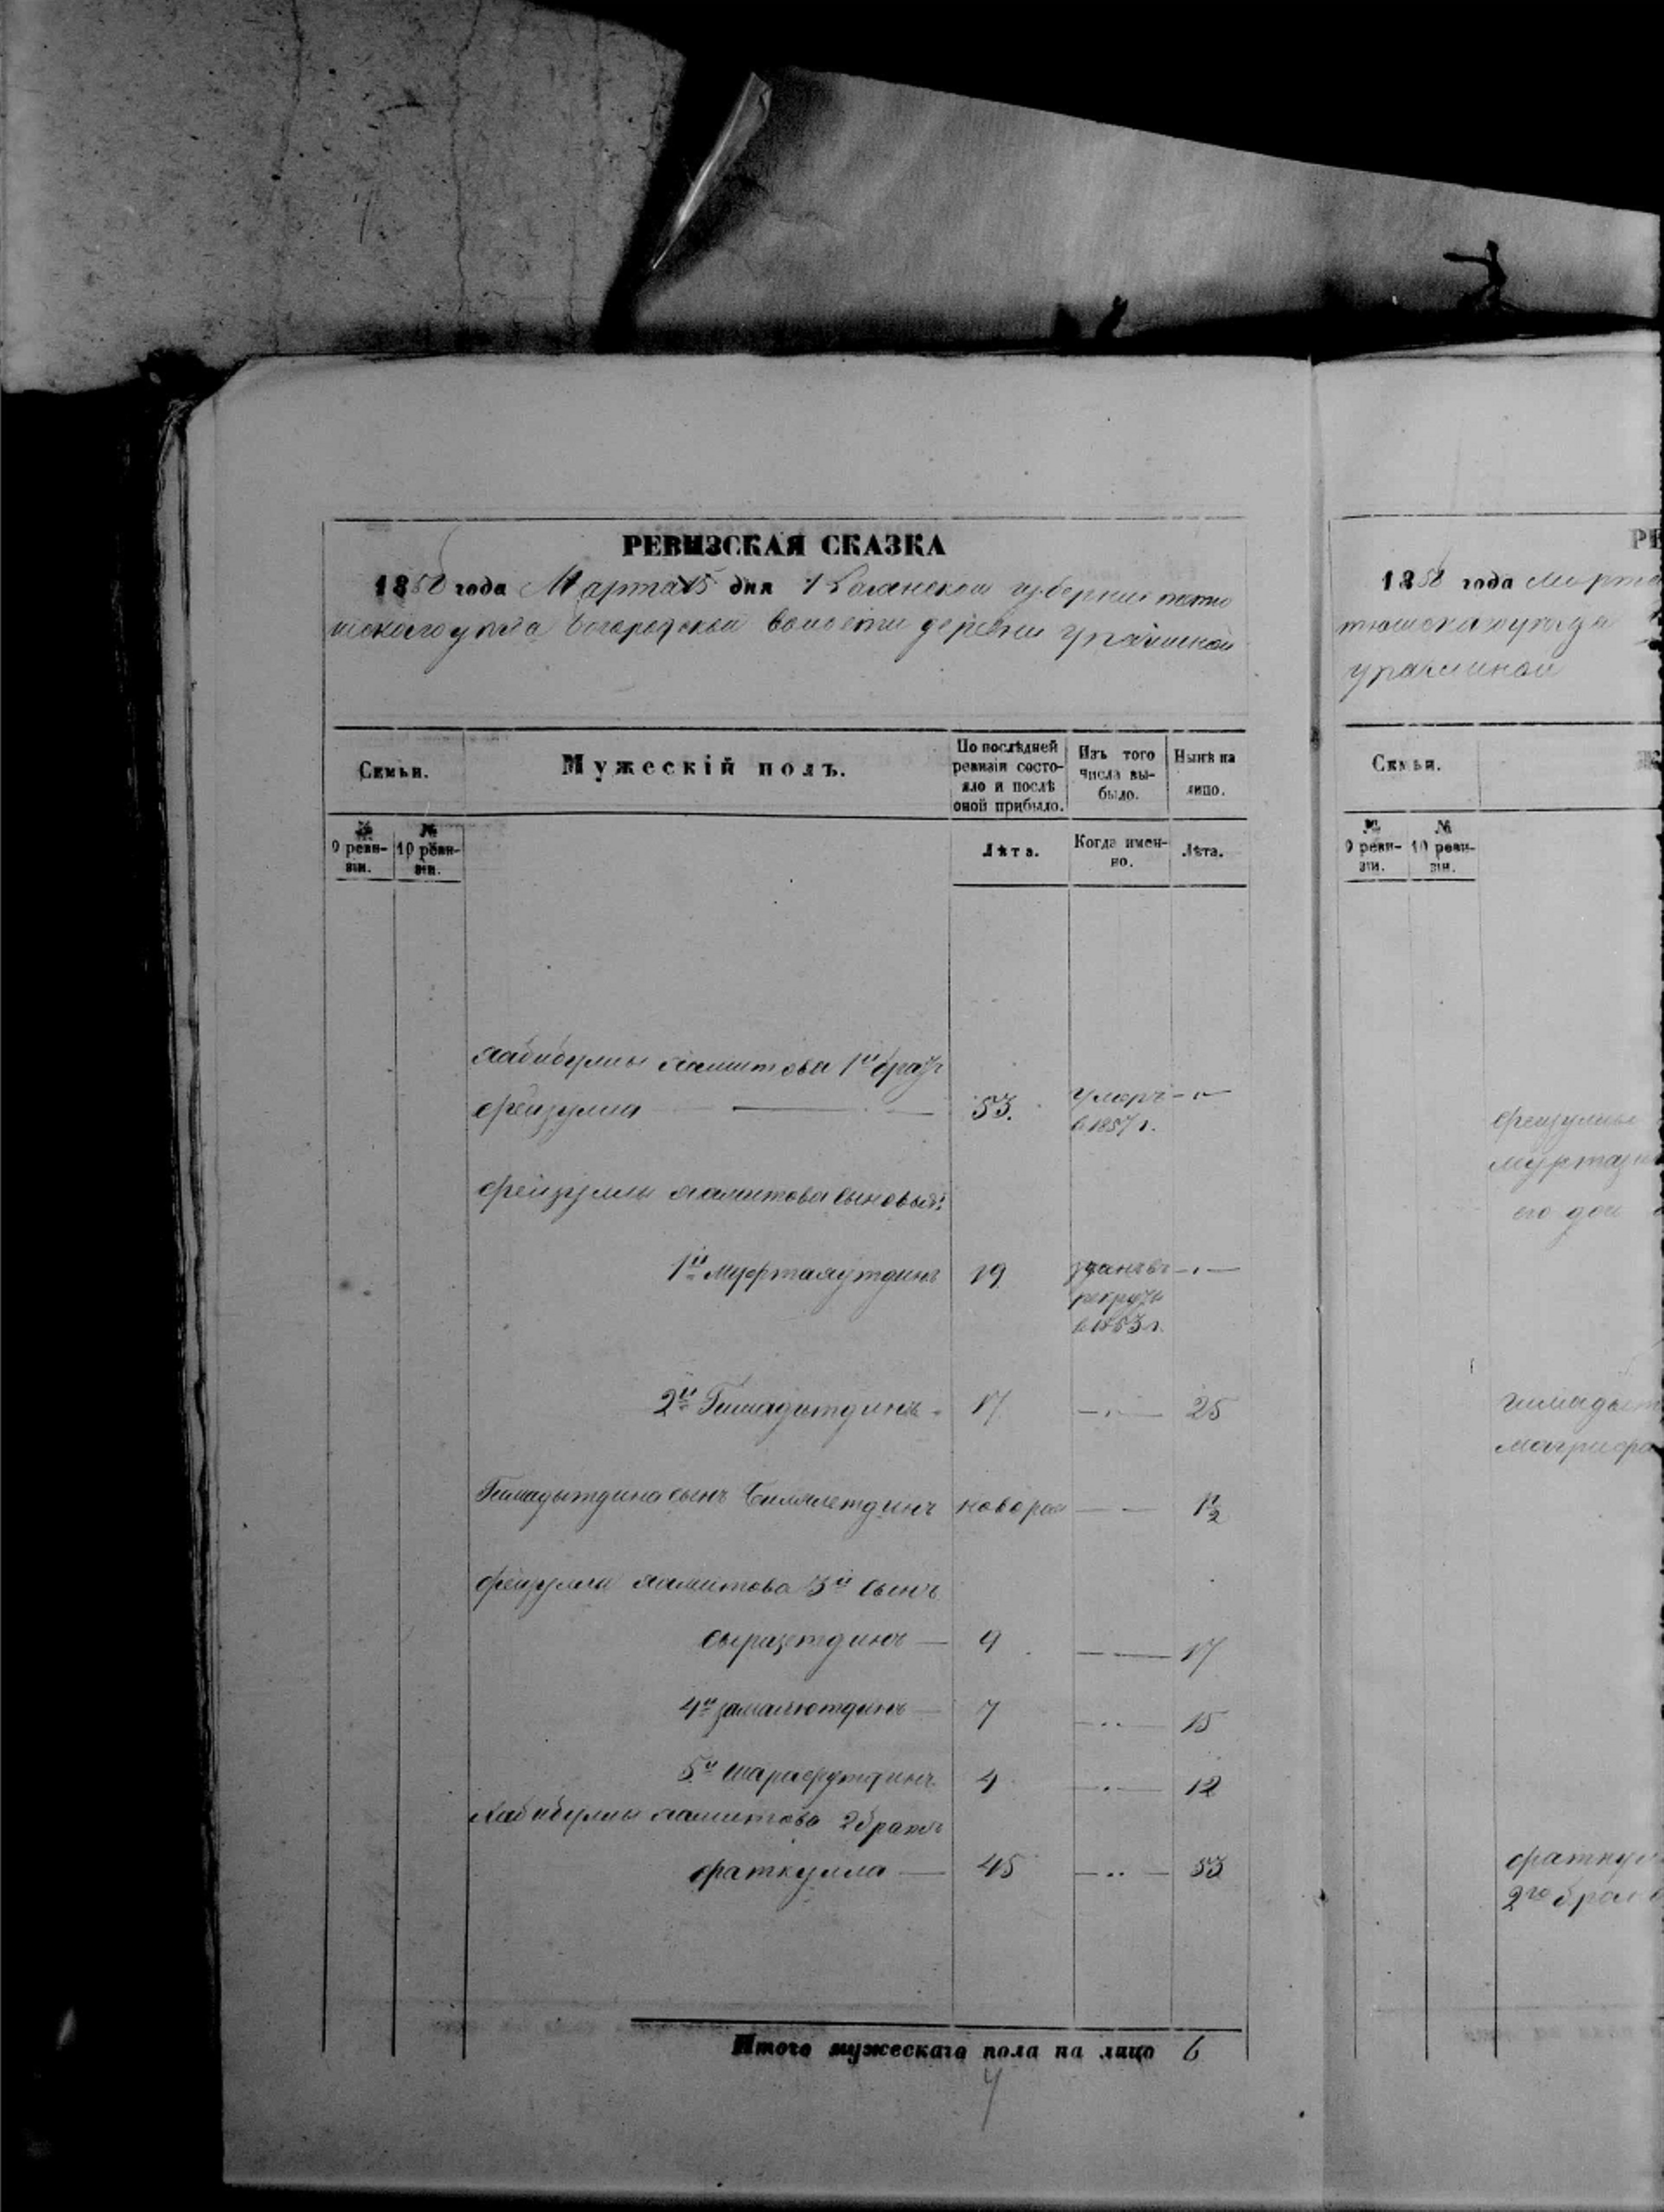 РЕВИЗСКАЯ СКАЗКА
1858 года Марта 15 дня Казанской губернии тетю
шскаго уезда Богородской волости деревни Урашиной
Семьи.
Мужескій полъ.
По послѣдней ревизіи состояло и послѣ оной прибыло.
Изъ того числа выбыло.
Нынѣ на лицо.
№ 9 ревизіи.
№ 10 ревизіи.
Лѣта.
Когда именно.
Лѣта.
Хабибуллы Хамитова 1й братъ
Фейзулла 53. умеръ
в 1857 г.
Фейзуллы Хамитова сыновья:
1й Муфтахутдинъ 19 зданъ въ
рекруты
в 1853 г.
2й Гимадытдинъ 17 25
Гимадытдина сынъ Билялетдинъ новорож 1/2
Фейзуллы Хамитова 3й сынъ
Сыразетдинъ 9 17
4й Замалютдинъ 7 15
5й Шарафутдинъ 4 12
Хабибуллы Хамитова 2 братъ
Фаткулла 45 53
Итого мужескаго пола на лицо 6
РЕ
1858 года Марта
тюшскаго уезда
Урашиной
Семьи.
№ 9 ревизіи.
№ 10 ревизіи.
Фейзуллы
Муртаз
его доч
Гимадыт
Магриф
Фаткул
2го брака